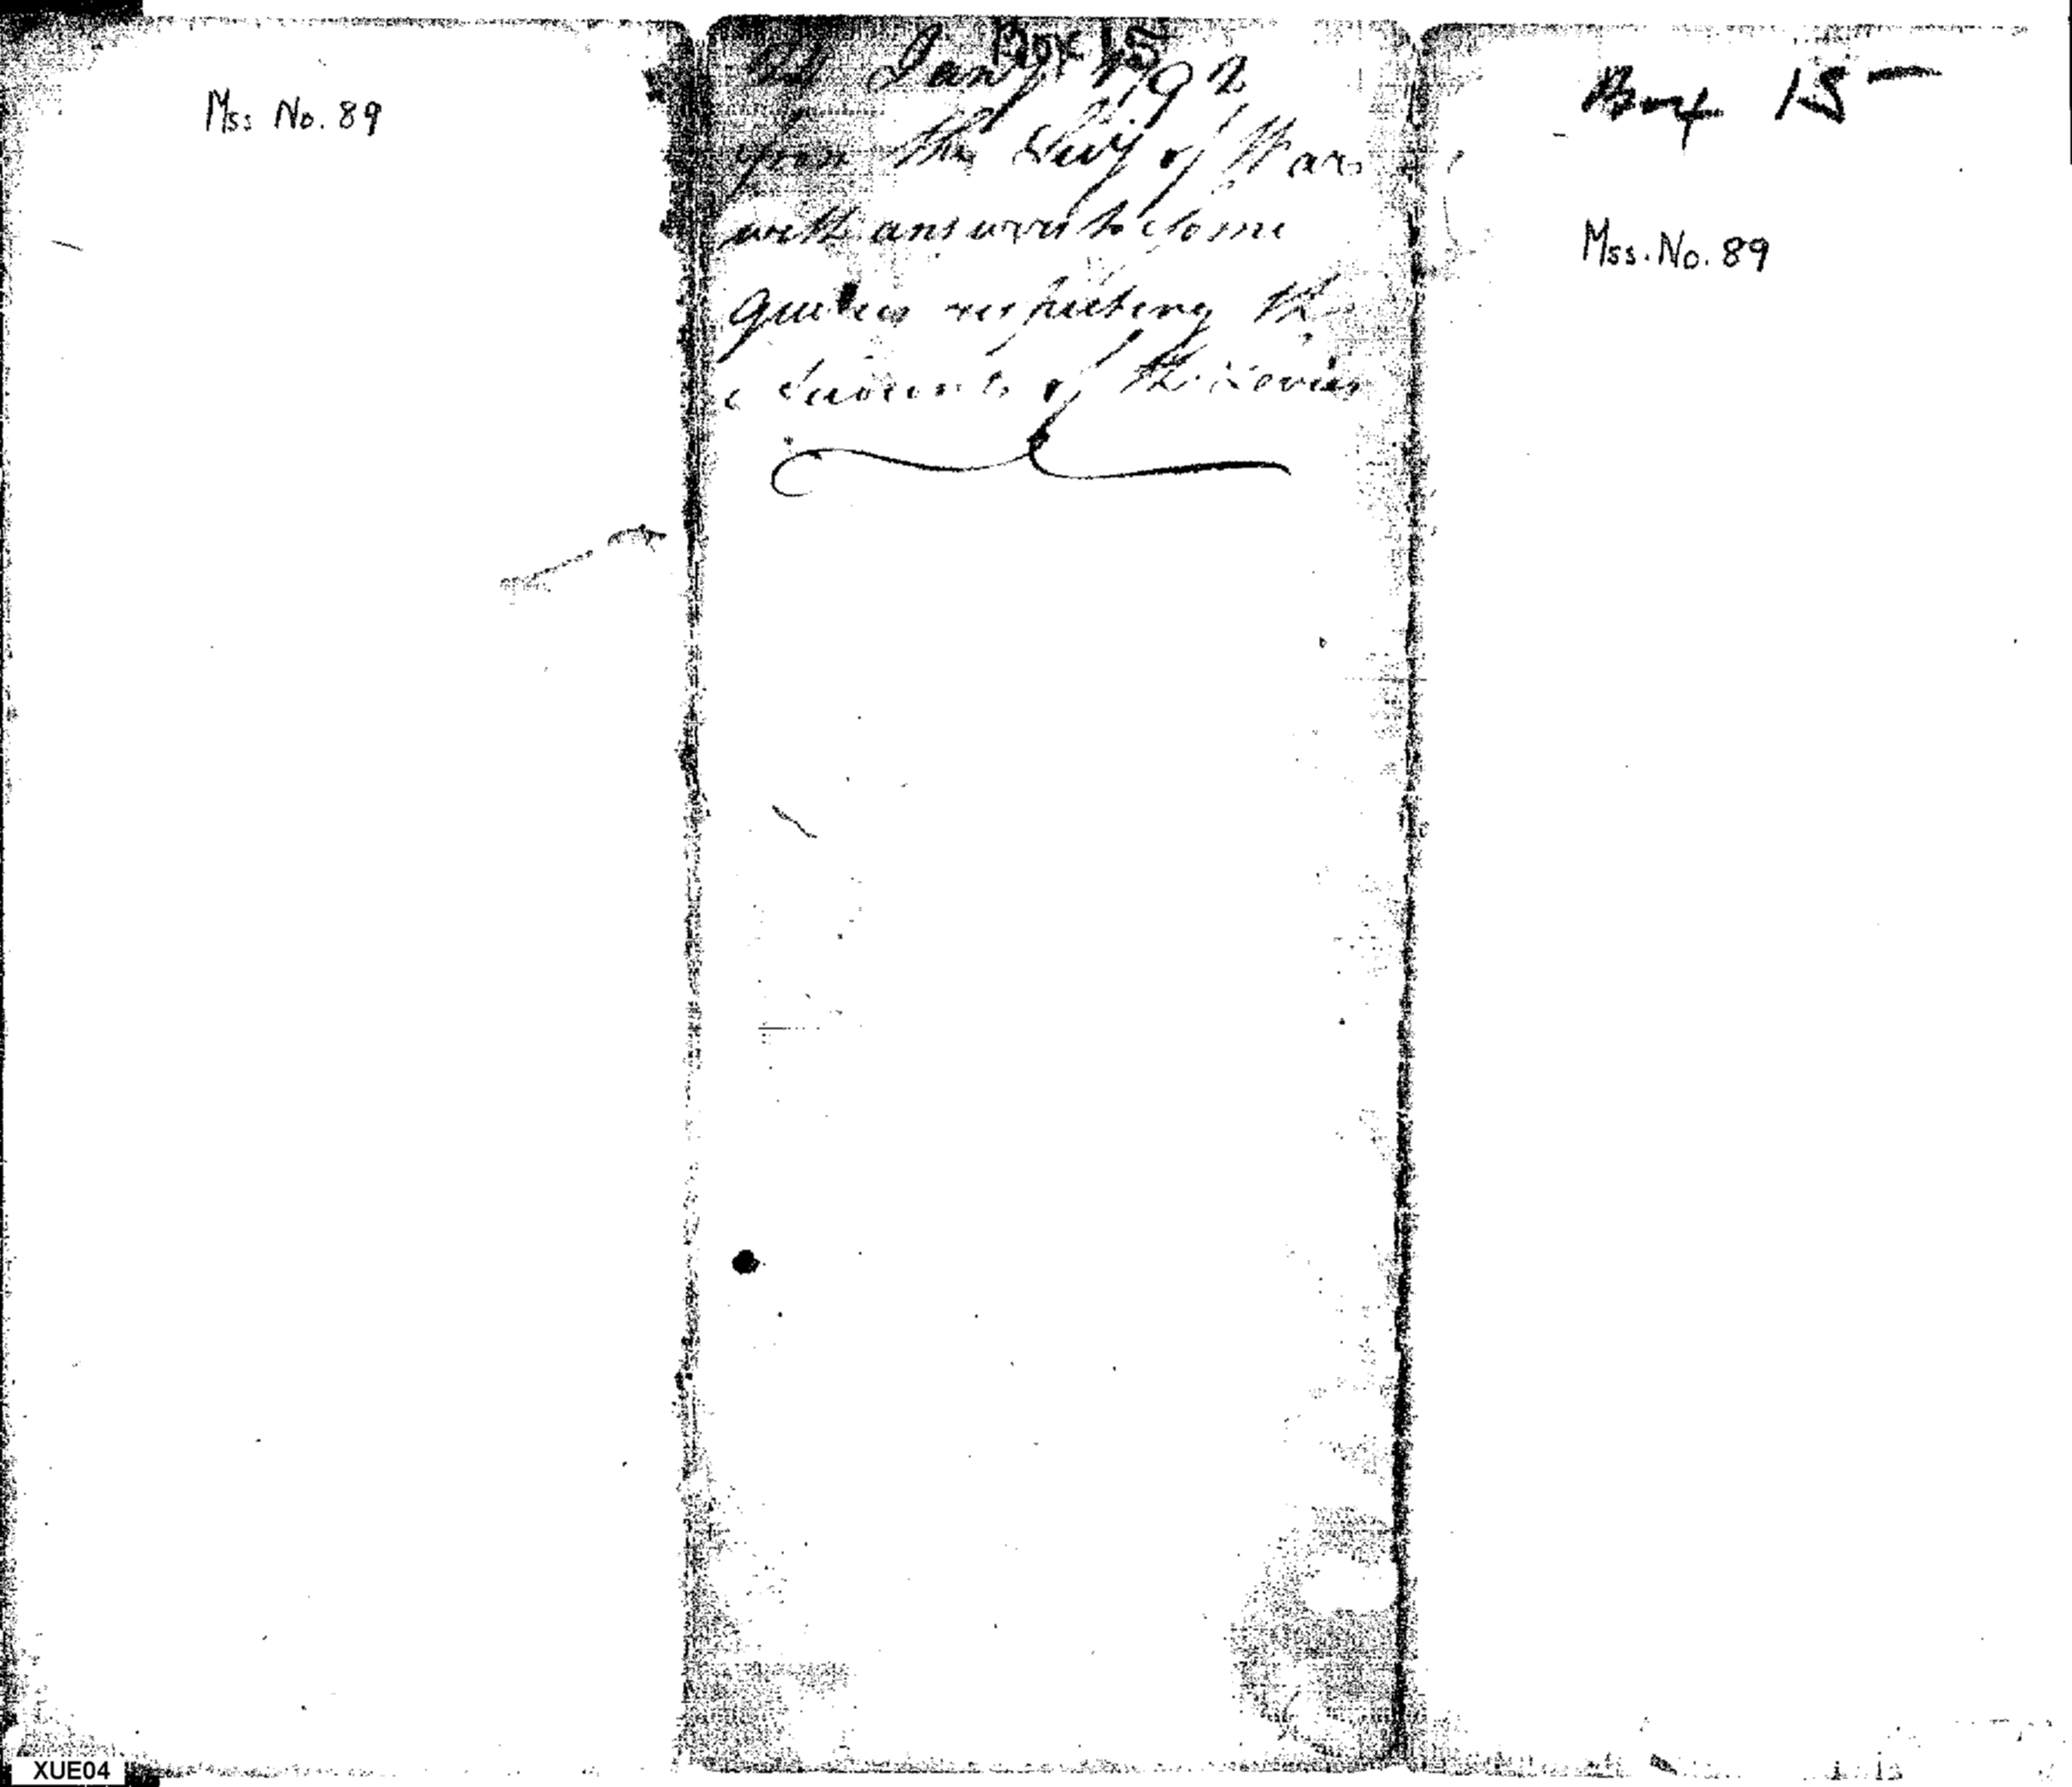 Mss No. 89
Box 15
Jany 1792
from the Secy of War
with answers to some
Queries respecting the
accounts of the Levies
Box 15
Mss. No. 89
XUE04